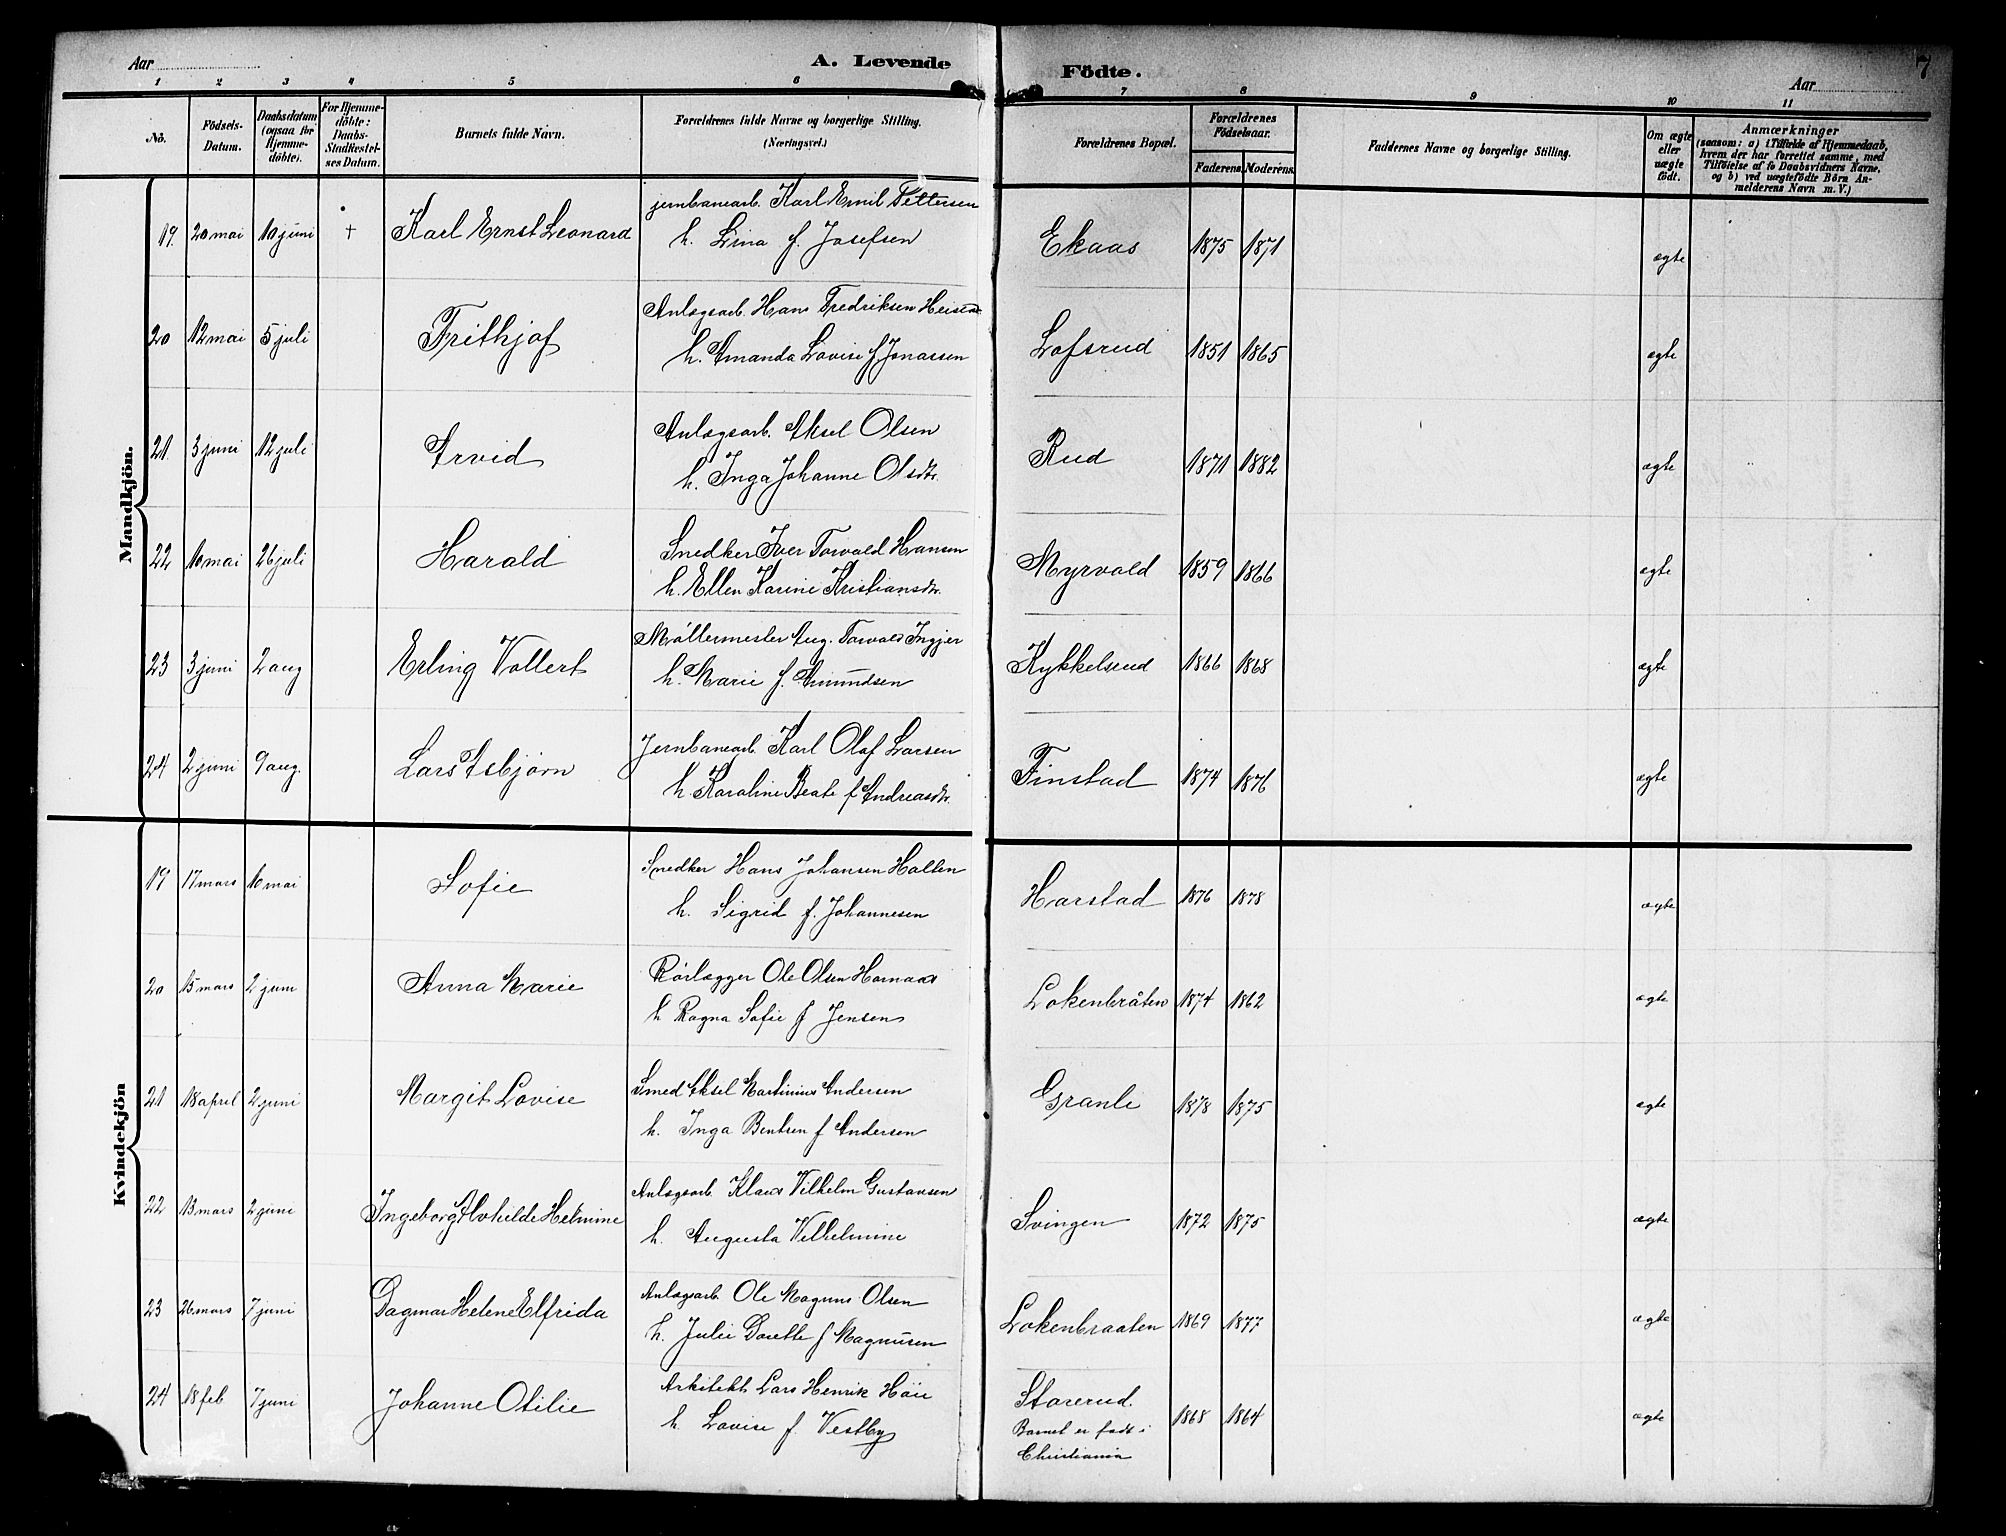 Aar A. Levende Födte. Aar 7
1 2 3 4 5 6 7 8 9 10 11
No. Födsels-Datum. Daabsdatum (ogsaa for Hjemme-döbte). For Hjemme-döbte: Daabs-Stadfæstel-ses Datum. Barnets fulde Navn. Forældrenes fulde Navne og borgerlige Stilling. (Næringsvei.) Forældrenes Bopæl. Forældrenes Födselsaar. Faderens. Moderens. Faddernes Navne og borgerlige Stilling. Om ægte eller uægte födt. Anmærkninger (saasom: a) i Tilfælde af Hjemmedaab, hvem der har forrettet samme, med Tilföielse af to Daabsvidners Navne, og b) ved uægtefödte Börn An-melderens Navn m. V.)
Mandkjön.
19. 20 mai 10 juni + Karl Ernst Leonard jernbanearb. Karl Emil Pettersen Ekaas 1875 1871 ægte
h. Lina f. Josefsen
20 12 mai 5 juli Frithjof Anlægsarb. Hans Fredriksen Lofsrud 1851 1865 ægte
h. Amanda Lovise f. Jonassen
21. 3 juni 12 juli Arvid Anlægsarb. Aksel Olsen Rud 1871 1882 ægte
h. Inga Johanne Olsdtr.
22 10 mai 26 juli Harald Snedker Iver Torvald Hansen Myrvold 1859 1866 ægte
h. Ellen Karine Kristiansdtr.
23 3 juni 2 aug Erling Vollert Møllermester Aug. Torvald Ingjer Kykkelsrud 1866 1868 ægte
h. Marie f. Amundsen
24 2 juni 9 aug. Lars Asbjørn Jernbanearb. Karl Olaf Larsen Finstad 1874 1876 ægte
h. Karoline Beate f Andreasdtr.
Kvindekjön
19 17 mars 10 mai Sofie Snedker Hans Johansen Holten Harstad 1876 1878 ægte
h. Sigrid f. Johannesen
20 15 mars 2 juni Anna Marie Rørlægger Ole Olsen Hornaas Lokenbråten 1874 1862 ægte
h Ragna Sofie f Jensen
21 18 april 2 juni Margit Lovise Smed Aksel Martinius Andersen Granli 1878 1875 ægte
h. Inga Bentsen f Andersen
22 13 mars 2 juni Ingeborg Alvhilde Helmine Anlægsarb. Klaus Vilhelm Gustavsen Svingen 1872 1875 ægte
h. Augusta Vilhelmine
23 26 mars 7 juni Dagmar Helene Elfrida Anlægsarb. Ole Magnus Olsen Lokenbraaten 1869 1877 ægte
h. Julie Dorette f Magnusen
24 18 feb 7 juni Johanne Otilie Arkitekt Lars Henrik Høie Storerud. 1868 1864 ægte
h. Lovise f. Vestby Barnet er født i
Christiania